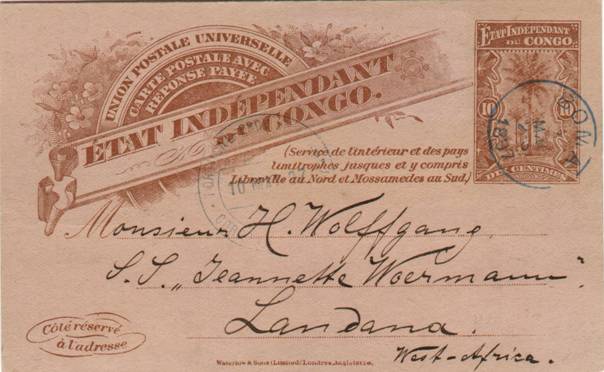 UNION POSTALE UNIVERSELLE
CARTE POSTALE AVEC
RÉPONSE PAYÉE
ETAT INDÉPENDANT
DU CONGO.
(Service de l'intérieur et des pays
limitrophes jusques et y compris
Libreville au Nord et Mossamedes au Sud.)
ETAT INDÉPENDANT
DU CONGO
10 10
DIX CENTIMES
BOMA
Monsieur H. Wolffgang,
S. S. „Jeannette Woermann"
Landana.
West-Africa.
Côté réservé
à l'adresse
Waterlow & Sons Limited, Londres, Angleterre.